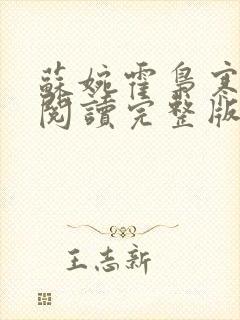 蘇婉霍梟寒
閱讀完整版
王志新